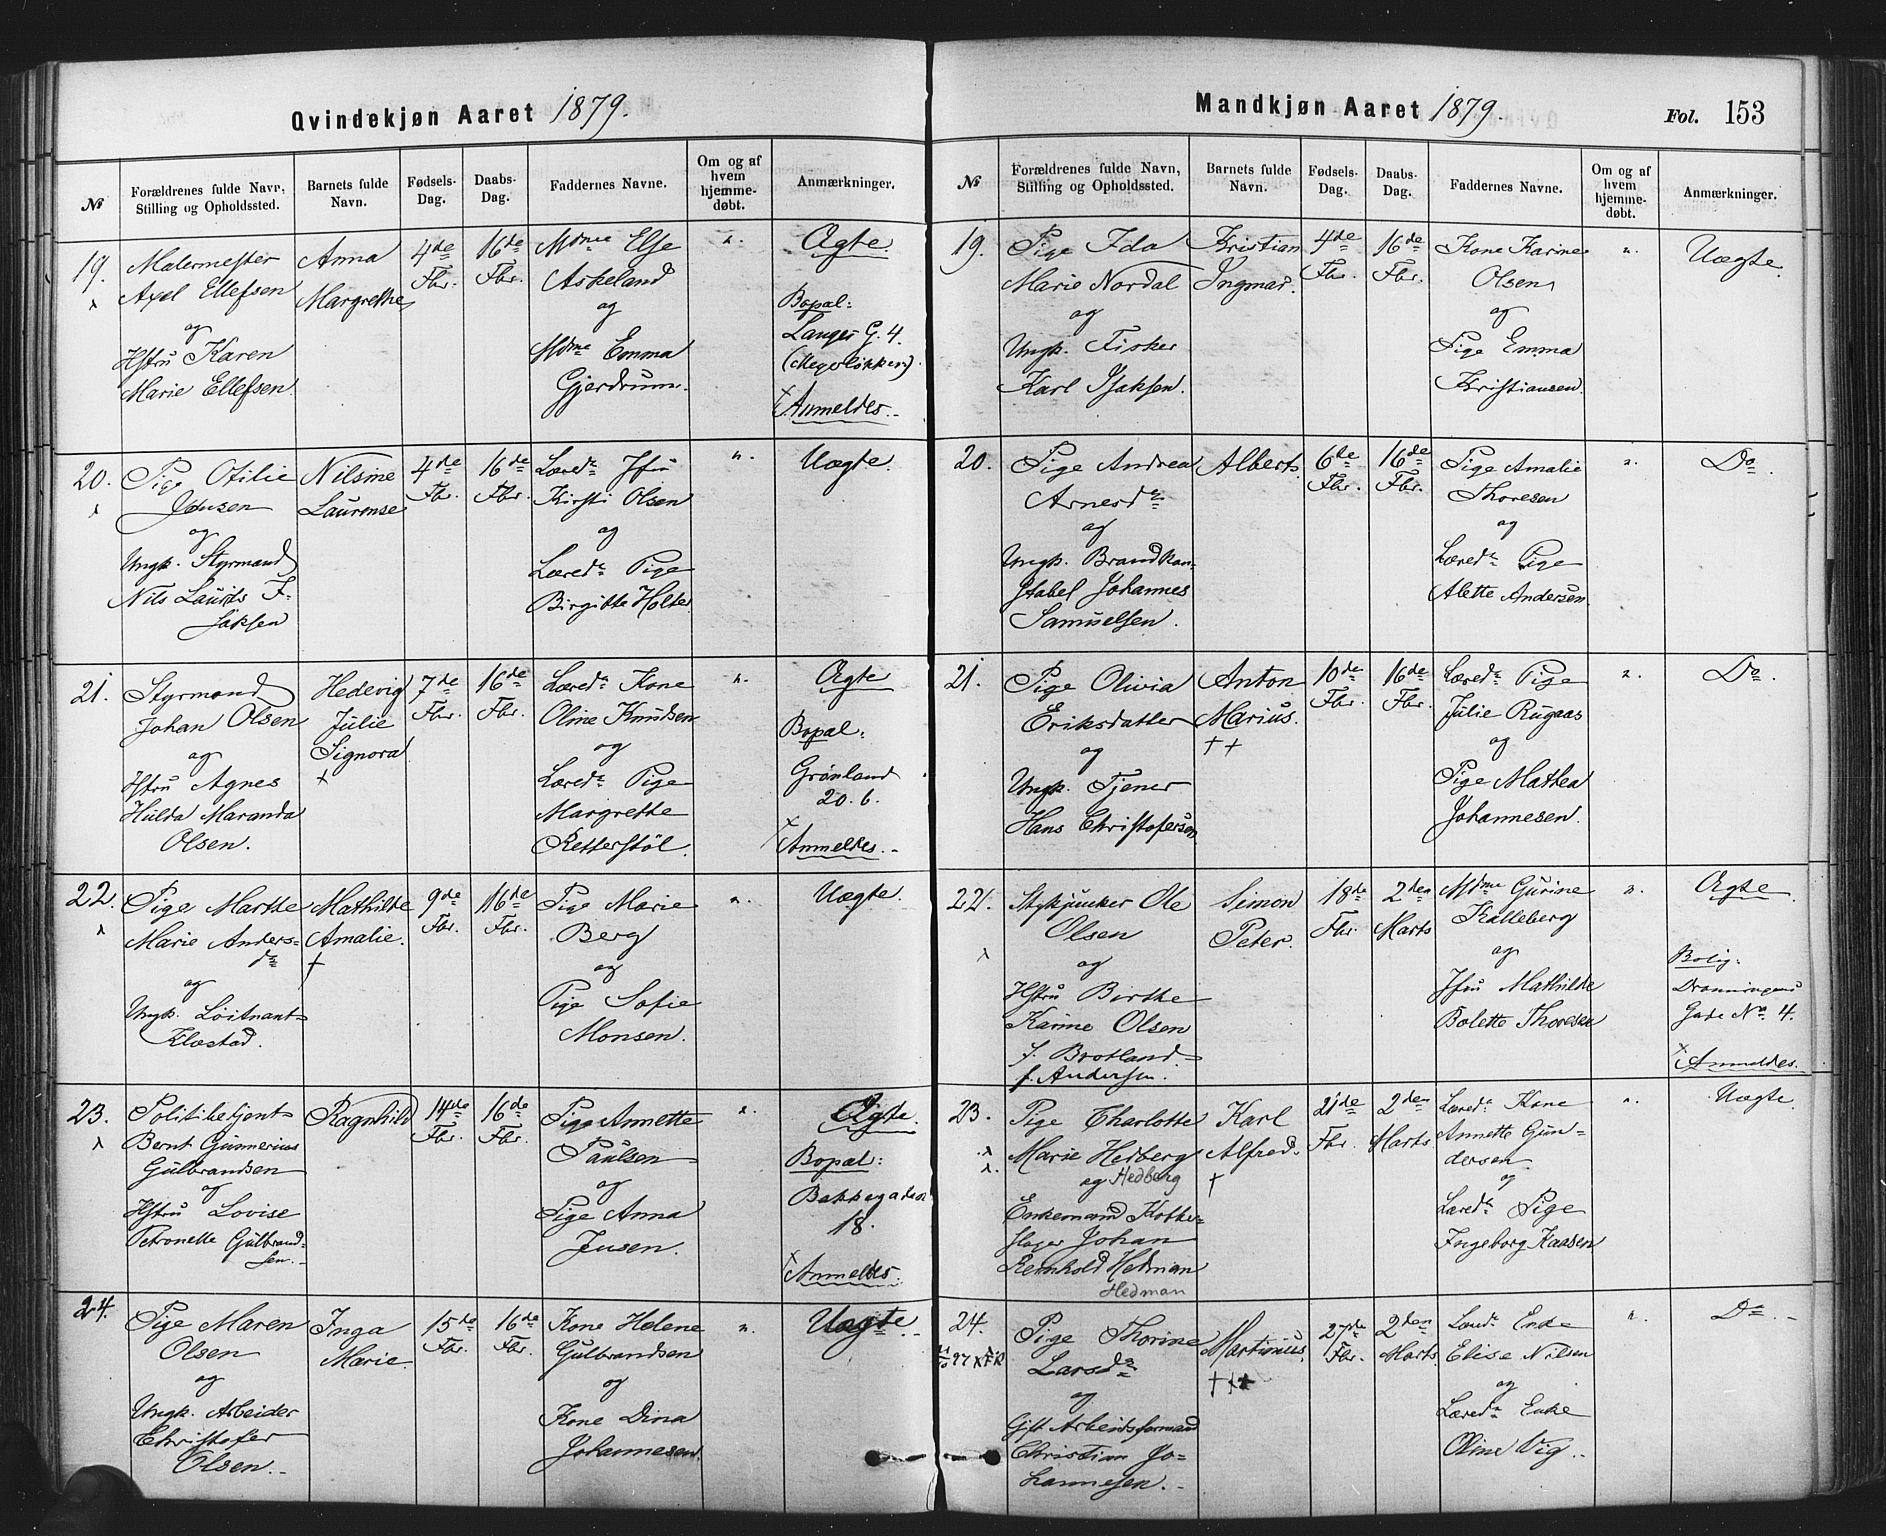 Qvindekjøn Aaret 1879.
№
Forældrenes fulde Navn,
Stilling og Opholdssted.
Barnets fulde
Navn.
Fødsels-
Dag.
Daabs-
Dag.
Faddernes Navne.
Om og af
hvem
hjemme-
døbt.
Anmærkninger.
19.
Malermester
Axel Ellefsen
og
Hstru Karen
Marie Ellefsen
Anna
Margrethe
4de
Fbr.
16de
Fbr.
Mdme Else
Askeland
og
Mdme Emma
Gjerdrum.
"
Ægte.
Bopæl:
Langes G. 4.
(Meyerløkken).
Anmeldes.
20.
Pige Otilie
Jensen
og
Ungk. Styrmand
Nils Laurits F.
Nilsine
Laurense
4de
Fbr.
16de
Fbr.
Læred. Jfru
Kirsti Olsen
og
Læred. Pige
Birgitte Holter
"
Uægte.
21.
Styrmand
Johan Olsen
og
Hstru Agnes
Hulda Maranda
Olsen.
Hedevig
Julie
Signora
7de
Fbr.
16de
Fbr.
Læred. Kone
Oline Knudsen
og
Læred. Pige
Margrethe
Ketterstöl.
"
Ægte
Bopæl:
Grønland
20.6.
Anmeldes.
22.
Pige Marthe
Marie Anders-
dr
og
Ungk. Löitnant
Klostad.
Mathilde
Amalie.
9de
Fbr.
16de
Fbr.
Pige Marie
Berg
og
Pige Sofie
Monsen.
"
Uægte.
23.
Politibetjent
Bernt Gunnerius
Gulbrandsen
og
Hstru Lovise
Petronelle Gulbrand-
sen.
Ragnhild
14de
Fbr.
16de
Fbr.
Pige Annette
Paulsen
og
Pige Anna
Jensen.
"
Ægte.
Bopæl:
Bakkegaden
18.
Anmeldes.
24.
Pige Maren
Olsen
og
Ungk. Arbeider
Christofer
Olsen.
Inga
Marie.
15de
Fbr.
16de
Fbr.
Kone Helene
Gulbrandsen
og
Kone Dina
Johannesen.
"
Uægte.
Mandkjøn Aaret 1879.
Fol. 153
№
Forældrenes fulde Navn,
Stilling og Opholdssted.
Barnets fulde
Navn.
Fødsels-
Dag.
Daabs-
Dag.
Faddernes Navne.
Om og af
hvem
hjemme-
døbt.
Anmærkninger.
19.
Pige Ida
Marie Nordal
og
Ungk. Fisker
Karl Isaksen.
Kristian
Ingmar.
4de
Fbr.
16de
Fbr.
Kone Karine
Olsen
og
Pige Emma
Kristiansen.
"
Uægte.
20.
Pige Andrea
Arnesdr
og
Ungk. Brandkon-
stabel Johannes
Samuelsen.
Albert.
6de
Fbr.
16de
Fbr.
Pige Amalie
Thoresen
og
Læred. Pige
Alette Andersen.
"
Do.
21.
Pige Olivia
Eriksdatter
og
Ungk. Tjener
Hans Christofersen
Anton
Marius.
††
10de
Fbr.
16de
Fbr.
Læred. Pige
Julie Rugaas
og
Pige Mathea
Johannesen.
"
Do.
22.
Stykjunker Ole
Olsen
og
Hstru Birthe
Karine Olsen
f. Brotland
f. Andersen.
Simon
Peter.
18de
Fbr.
2den
Marts
Mdme Gurine
Kalleberg
og
Jfru Mathilde
Bolette Thoresen
"
Ægte
Bolig:
Dronningens
Gade No 4.
Anmeldes.
23.
Pige Charlotte
Marie Hedberg
og Hedberg
Enkemand Kobber-
slager Johan
Reinhold Hedman
Hedman
Karl
Alfred.
†
21de
Fbr.
2den
Marts
Læred. Kone
Annette Gun-
dersen
og
Læred. Pige
Ingeborg Kaasen
"
Uægte.
24.
Pige Thorine
Larsdr
og
Gift Arbeidsformand
Christian Jo-
hannesen.
Martinius.
†††
27de
Fbr.
2den
Marts
Læred. Enke
Elise Nilsen
og
Læred. Enke
Oline Vig.
"
Do.